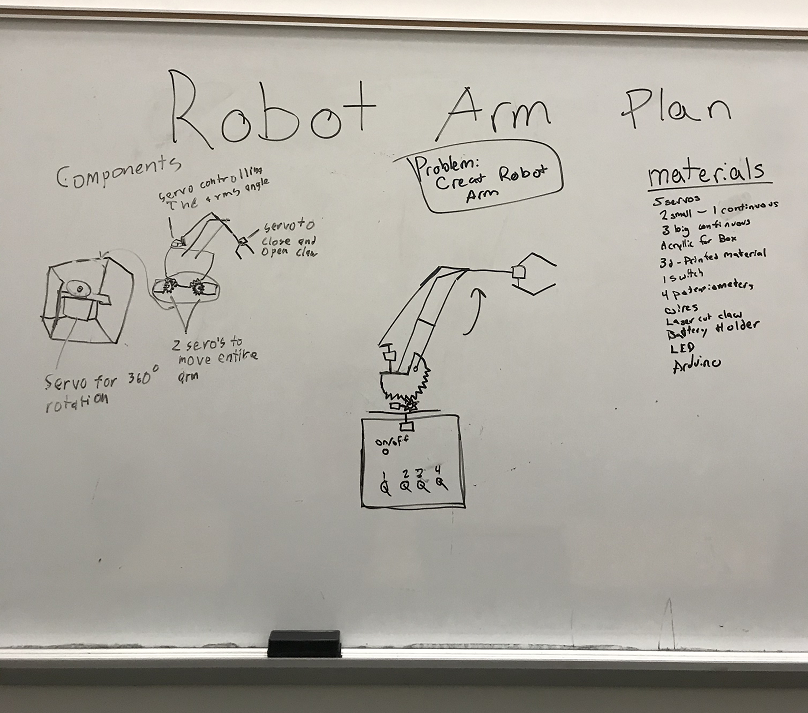 Robot Arm Plan
Components
Servo controlling
The arms angle
servo to
close and
open claw
2 servo's to
move entire
arm
Servo for 360°
rotation
Problem:
Creat Robot
Arm
on/off
1 2 3 4
materials
5 servos
2 small - 1 continuous
3 big continuous
Acryllic for Box
3d-Printed material
1 switch
wires
Laser cut claw
Battery Holder
LED
Arduino